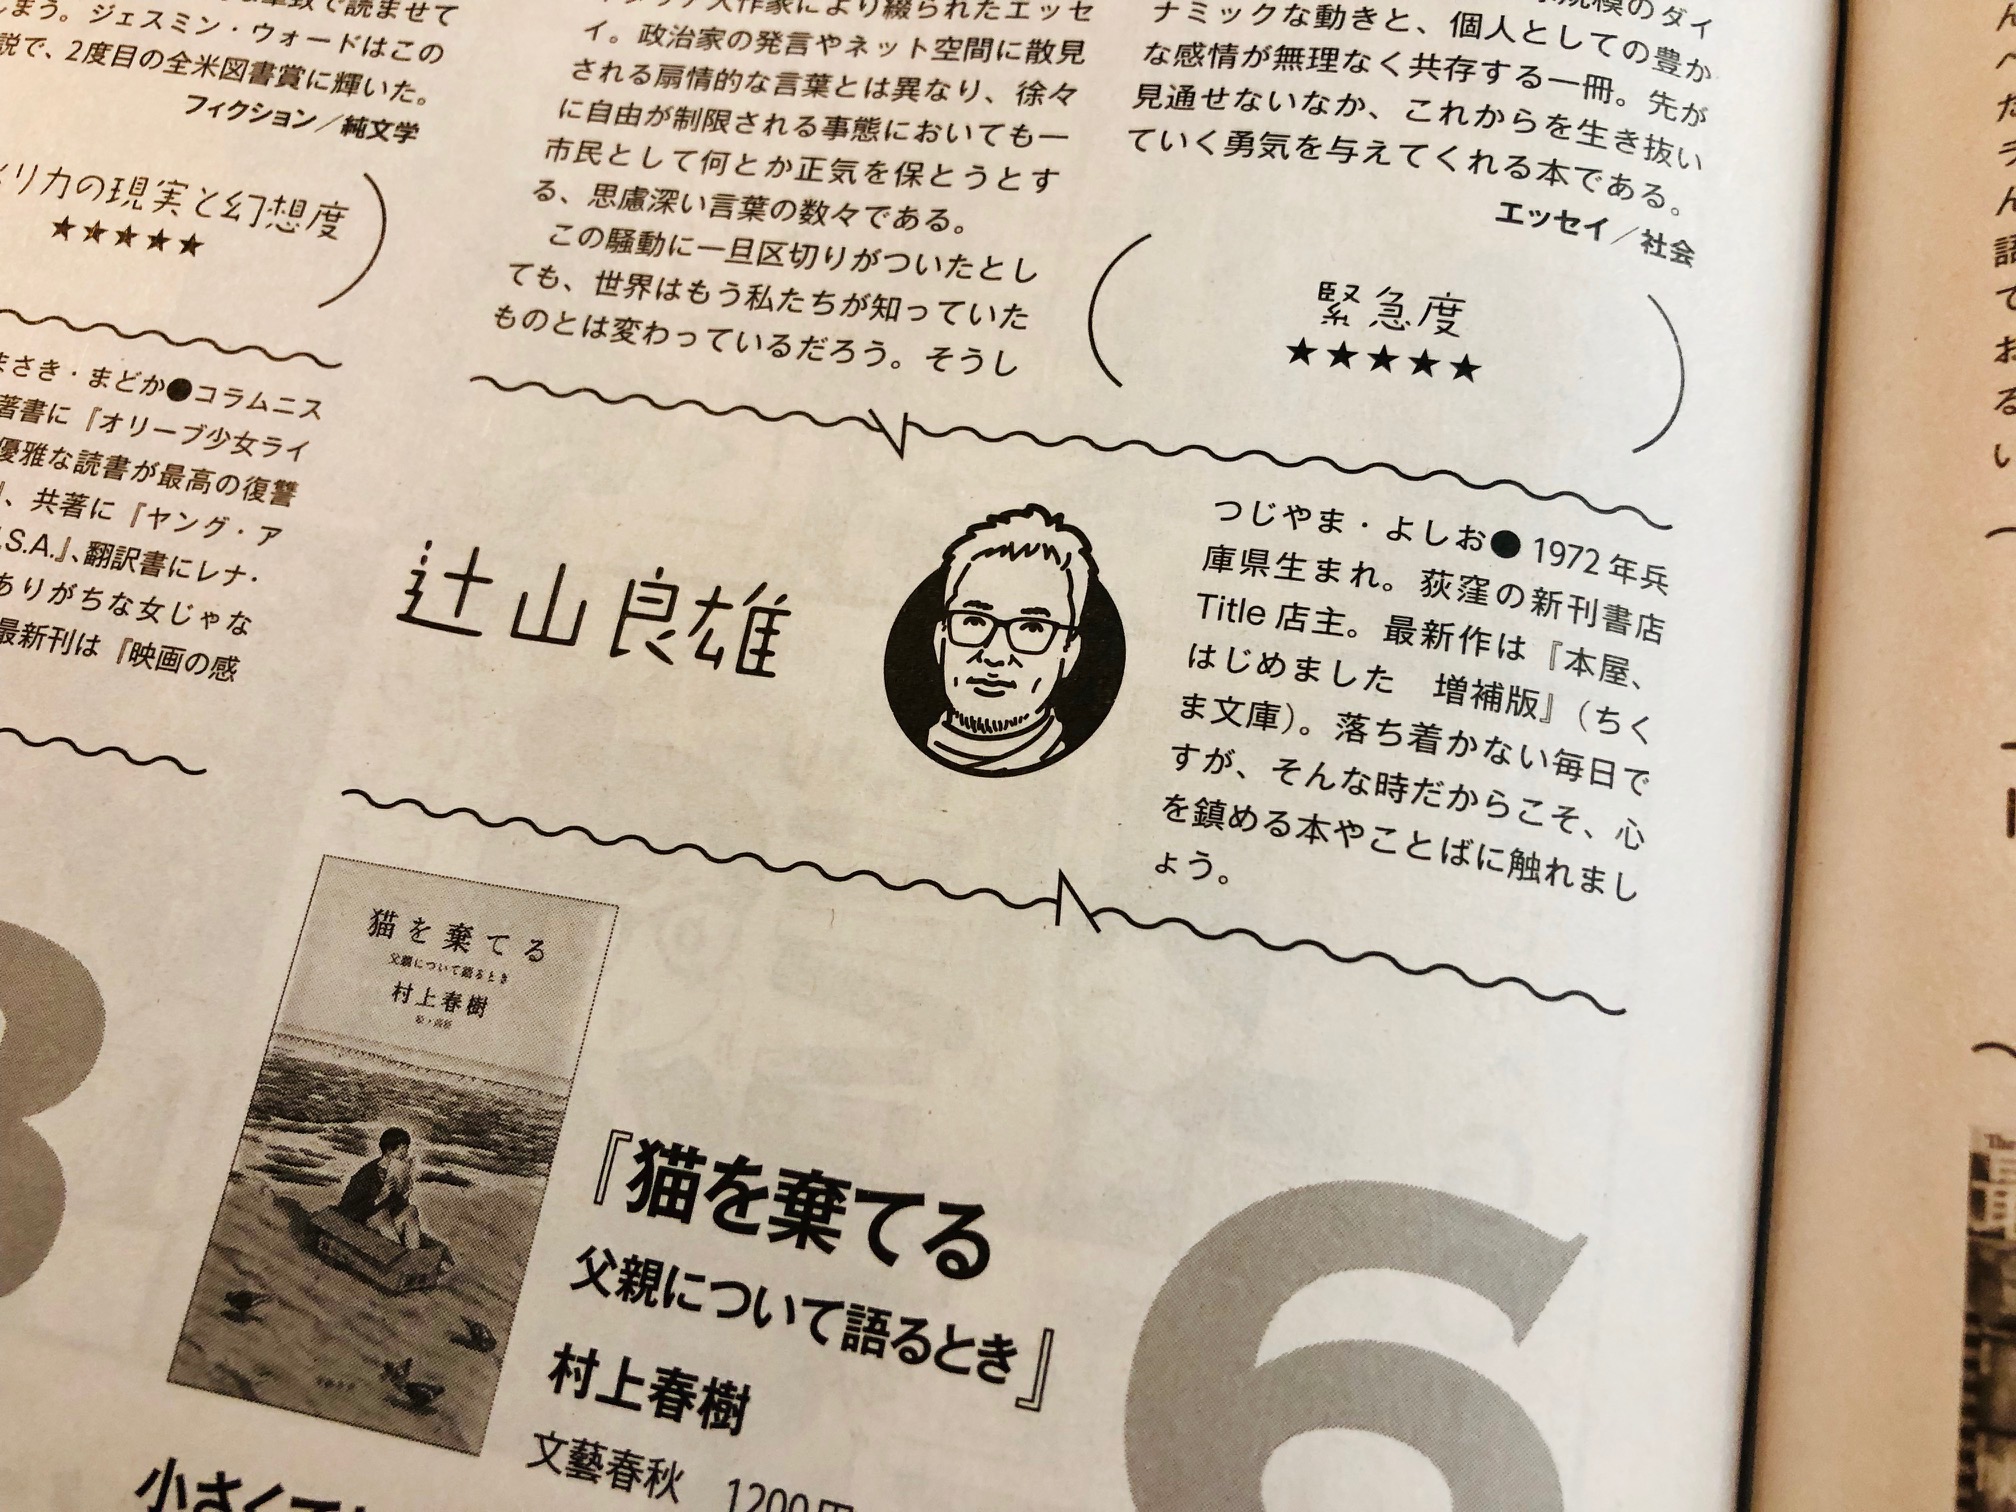 しまう。ジェスミン・ウォードはこの
説で、2度目の全米図書賞に輝いた。
フィクション／純文学
リカの現実と幻想度
★★★★★
まさき・まどか●コラムニス
著書に『オリーブ少女ライ
優雅な読書が最高の復讐
』、共著に『ヤング・ア
.S.A.』、翻訳書にレナ・
ありがちな女じゃな
最新刊は『映画の感
大作家により綴られたエッセ
イ。政治家の発言やネット空間に散見
される扇情的な言葉とは異なり、徐々
に自由が制限される事態においても一
市民として何とか正気を保とうとす
る、思慮深い言葉の数々である。
この騒動に一旦区切りがついたとし
ても、世界はもう私たちが知っていた
ものとは変わっているだろう。そうし
規模のダイ
ナミックな動きと、個人としての豊か
な感情が無理なく共存する一冊。先が
見通せないなか、これからを生き抜い
ていく勇気を与えてくれる本である。
エッセイ／社会
緊急度
★★★★★
辻山良雄
つじやま・よしお●1972年兵
庫県生まれ。荻窪の新刊書店
Title店主。最新作は『本屋、
はじめました　増補版』（ちく
ま文庫）。落ち着かない毎日で
すが、そんな時だからこそ、心
を鎮める本やことばに触れまし
ょう。
猫を棄てる
父親について語るとき
村上春樹
『猫を棄てる
父親について語るとき』
村上春樹
文藝春秋　1200円
6